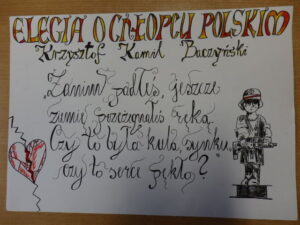 ELEGIA O CHŁOPCU POLSKIM
Krzysztof Kamil Baczyński
Zanim padłeś, jeszcze
ziemię przeżegnałeś ręką.
Czy to była kula, synku,
czy to serce pękło?